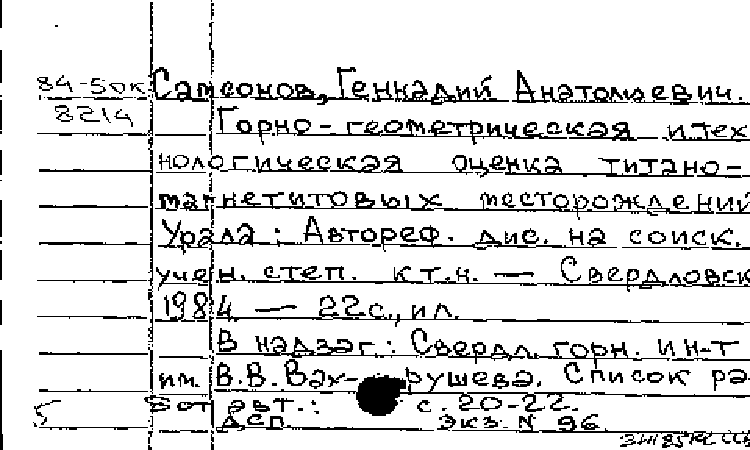 84-50к Самсонов, Геннадий Анатольевич.
8214 Горно-геометрическая и тех
нологическая оценка титано-
магнетитовых месторождений
Урала: Автореф. дис. на соиск.
учен. степ. к.т.н. — Свердловск
1984. — 22с., ил.
В надзаг.: Свердл. горн. ин-т
им. В.В. Вахрушева. Список ра-
5 бот авт.: с. 20-22.
ДСП Экз. N 96